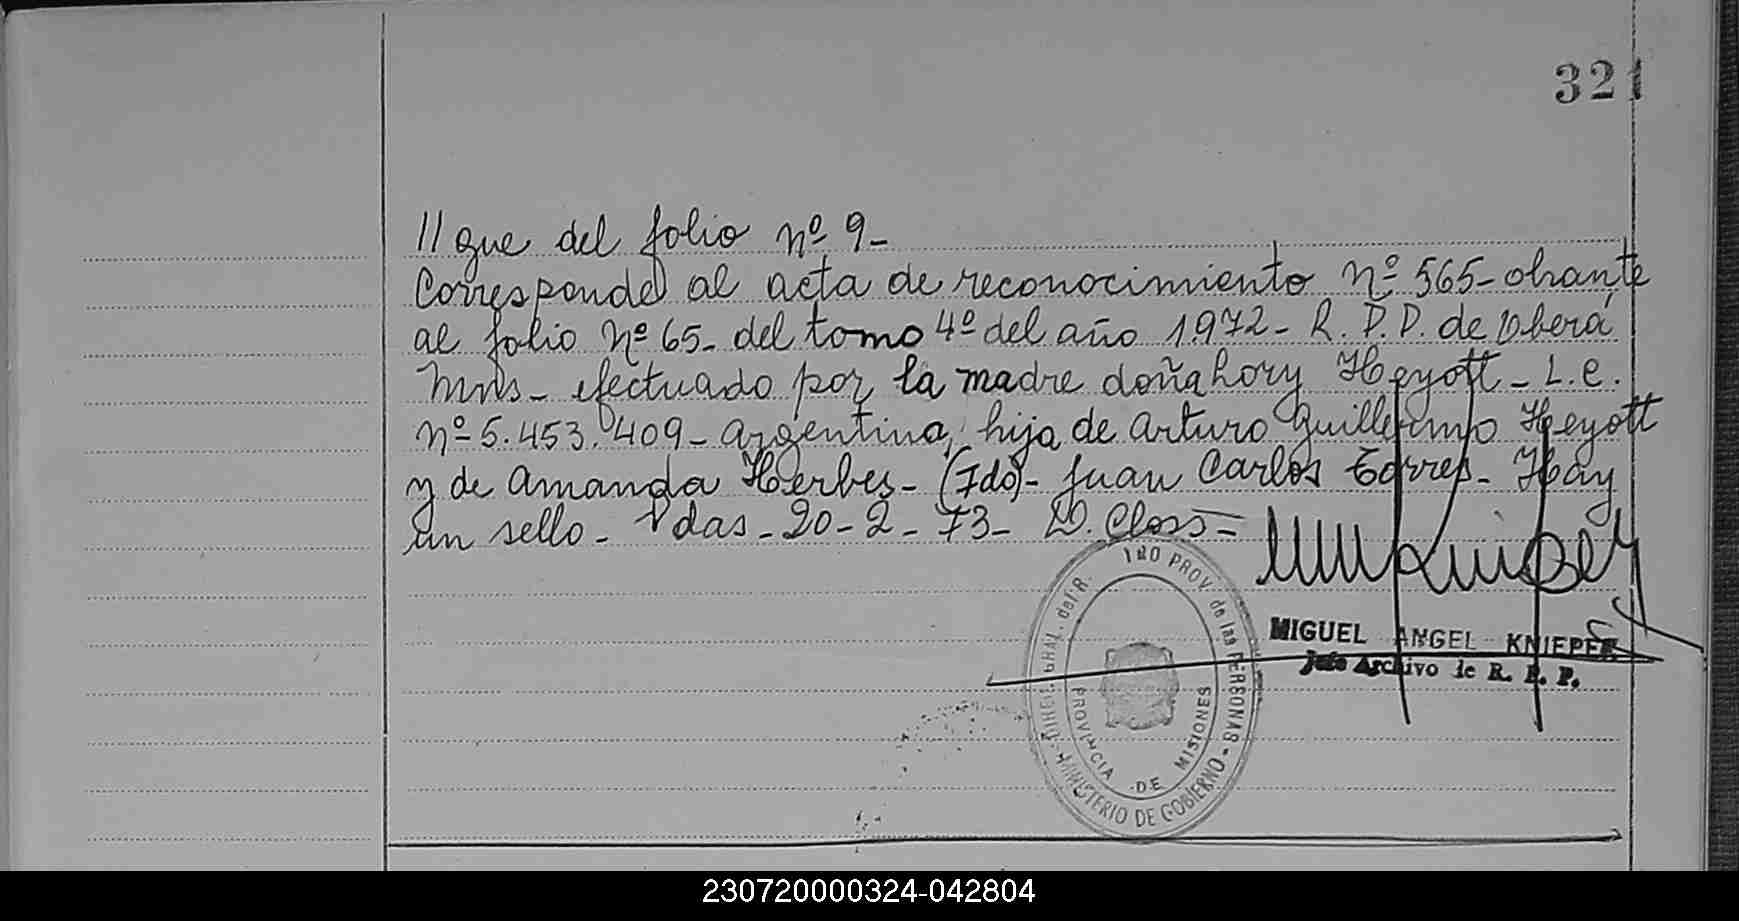 321
// gue del folio nº 9-
Corresponde al acta de reconocimiento nº 565- obrante
al folio nº 65- del tomo 4º del año 1.972- R. P.P. de Oberá
Mns- efectuado por la madre doña Lory Heyott - L.e.
nº 5.453.409- argentina, hija de Arturo Guillermo Heyott
y de Amanda Herbes- (Fdo)- Juan Carlos Torres- Hay
un sello- Pdas- 20-2-73- D. Closs=
MIGUEL ANGEL KNIEPER
Jefe Archivo de R. P. P.
DIREC. GRAL. del R. PROV. de las PERSONAS
MINISTERIO DE GOBIERNO
PROVINCIA DE MISIONES
230720000324-042804